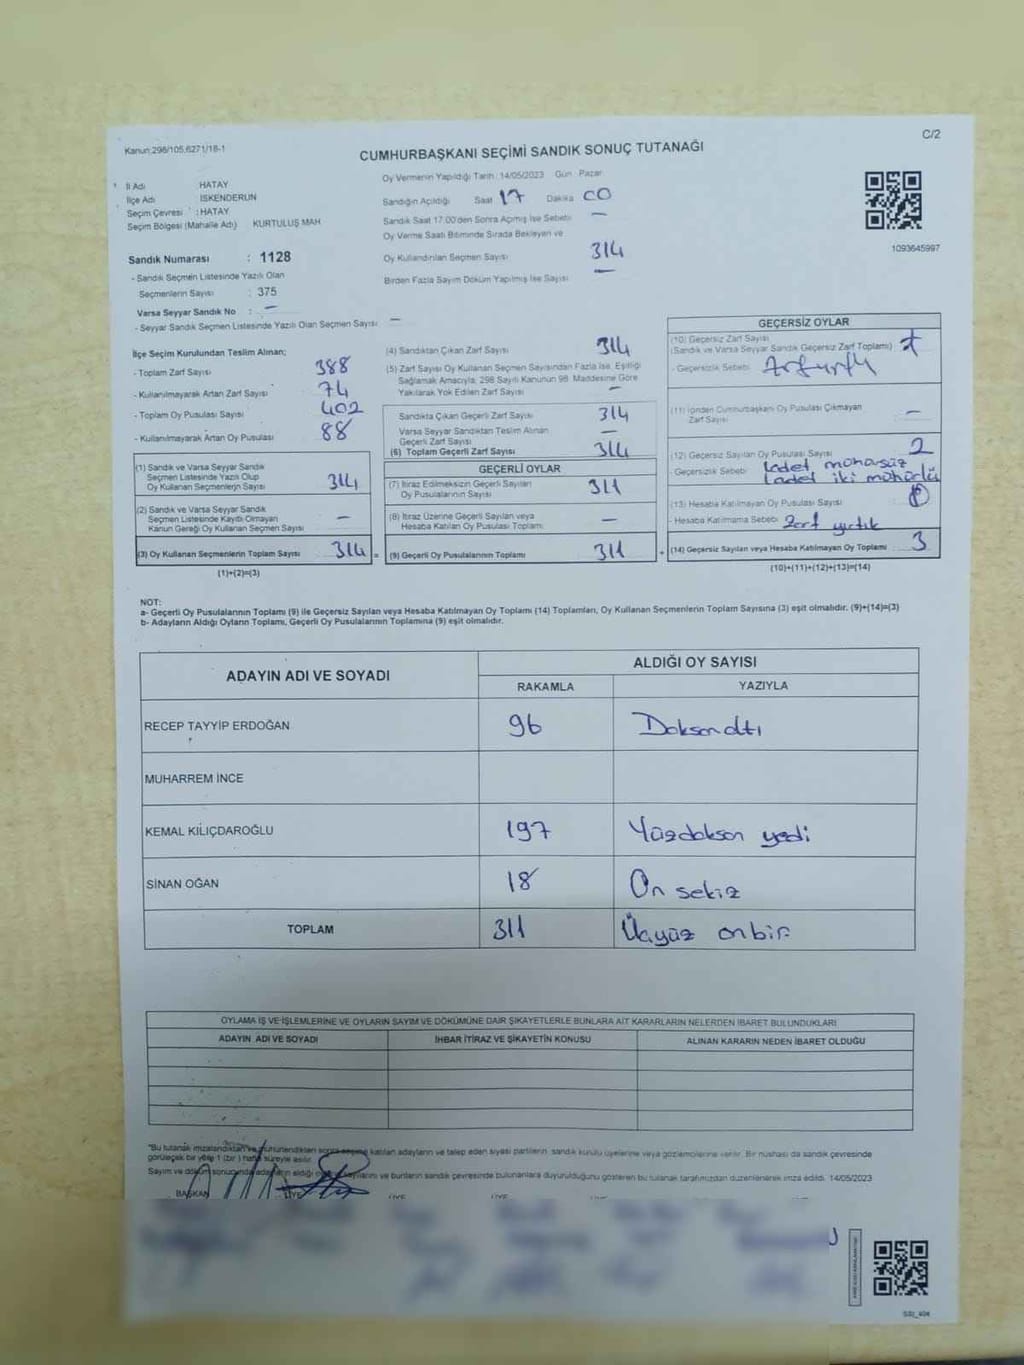 C/2
Kanun:298/105,6271/18-1
CUMHURBAŞKANI SEÇİMİ SANDIK SONUÇ TUTANAĞI
İl Adı HATAY
İlçe Adı İSKENDERUN
Seçim Çevresi : HATAY
Seçim Bölgesi (Mahalle Adı) KURTULUŞ MAH
Sandık Numarası : 1128
- Sandık Seçmen Listesinde Yazılı Olan
Seçmenlerin Sayısı : 375
Varsa Seyyar Sandık No : –
- Seyyar Sandık Seçmen Listesinde Yazılı Olan Seçmen Sayısı –
Oy Vermenin Yapıldığı Tarih : 14/05/2023 Gün : Pazar
Sandığın Açıldığı Saat 17 Dakika 00
Sandık Saat 17.00'den Sonra Açılmış İse Sebebi –
Oy Verme Saati Bitiminde Sırada Bekleyen ve
Oy Kullandırılan Seçmen Sayısı 314
Birden Fazla Sayım Döküm Yapılmış İse Sayısı –
1093645997
İlçe Seçim Kurulundan Teslim Alınan;
- Toplam Zarf Sayısı 388
- Kullanılmayarak Artan Zarf Sayısı 74
- Toplam Oy Pusulası Sayısı 402
- Kullanılmayarak Artan Oy Pusulası 88
(1) Sandık ve Varsa Seyyar Sandık
Seçmen Listesinde Yazılı Olup
Oy Kullanan Seçmenlerin Sayısı 314
(2) Sandık ve Varsa Seyyar Sandık
Seçmen Listesinde Kayıtlı Olmayan
Kanun Gereği Oy Kullanan Seçmen Sayısı –
(3) Oy Kullanan Seçmenlerin Toplam Sayısı 314 =
(1)+(2)=(3)
(4) Sandıktan Çıkan Zarf Sayısı 314
(5) Zarf Sayısı Oy Kullanan Seçmen Sayısından Fazla İse, Eşitliği
Sağlamak Amacıyla, 298 Sayılı Kanunun 98. Maddesine Göre
Yakılarak Yok Edilen Zarf Sayısı –
Sandıkta Çıkan Geçerli Zarf Sayısı 314
Varsa Seyyar Sandıktan Teslim Alınan
Geçerli Zarf Sayısı –
(6) Toplam Geçerli Zarf Sayısı 314
GEÇERLİ OYLAR
(7) İtiraz Edilmeksizin Geçerli Sayılan
Oy Pusulalarının Sayısı 311
(8) İtiraz Üzerine Geçerli Sayılan veya
Hesaba Katılan Oy Pusulası Toplamı –
(9) Geçerli Oy Pusulalarının Toplamı 311 +
GEÇERSİZ OYLAR
(10) Geçersiz Zarf Sayısı
(Sandık ve Varsa Seyyar Sandık Geçersiz Zarf Toplamı)
- Geçersizlik Sebebi
(11) İçinden Cumhurbaşkanı Oy Pusulası Çıkmayan
Zarf Sayısı –
(12) Geçersiz Sayılan Oy Pusulası Sayısı 2
- Geçersizlik Sebebi 1 adet mühürsüz
1 adet iki mühürlü
(13) Hesaba Katılmayan Oy Pusulası Sayısı
- Hesaba Katılmama Sebebi Zarf yırtık
(14) Geçersiz Sayılan veya Hesaba Katılmayan Oy Toplamı 3
(10)+(11)+(12)+(13)=(14)
NOT:
a- Geçerli Oy Pusulalarının Toplamı (9) ile Geçersiz Sayılan veya Hesaba Katılmayan Oy Toplamı (14) Toplamları, Oy Kullanan Seçmenlerin Toplam Sayısına (3) eşit olmalıdır. (9)+(14)=(3)
b- Adayların Aldığı Oyların Toplamı, Geçerli Oy Pusulalarının Toplamına (9) eşit olmalıdır.
ADAYIN ADI VE SOYADI ALDIĞI OY SAYISI
RAKAMLA YAZIYLA
RECEP TAYYİP ERDOĞAN 96 Doksan altı
MUHARREM İNCE
KEMAL KILIÇDAROĞLU 197 Yüzdoksan yedi
SİNAN OĞAN 18 On sekiz
TOPLAM 311 Üçyüz onbir
OYLAMA İŞ VE İŞLEMLERİNE VE OYLARIN SAYIM VE DÖKÜMÜNE DAİR ŞİKAYETLERLE BUNLARA AİT KARARLARIN NELERDEN İBARET BULUNDUKLARI
ADAYIN ADI VE SOYADI İHBAR İTİRAZ VE ŞİKAYETİN KONUSU ALINAN KARARIN NEDEN İBARET OLDUĞU
"Bu tutanak imzalandıktan ve mühürlendikten sonra seçime katılan adayların ve talep eden siyasi partilerin, sandık kurulu üyelerine veya gözlemcilerine verilir. Bir nüshası da sandık çevresinde
görülecek bir yere 1 (bir) hafta süreyle asılır.
Sayım ve döküm sonucunda adayların aldığı oy sayılarını ve bunların sandık çevresinde bulunanlara duyurulduğunu gösteren bu tutanak tarafımızdan düzenlenerek imza edildi. 14/05/2023
BAŞKAN ÜYE ÜYE ÜYE ÜYE